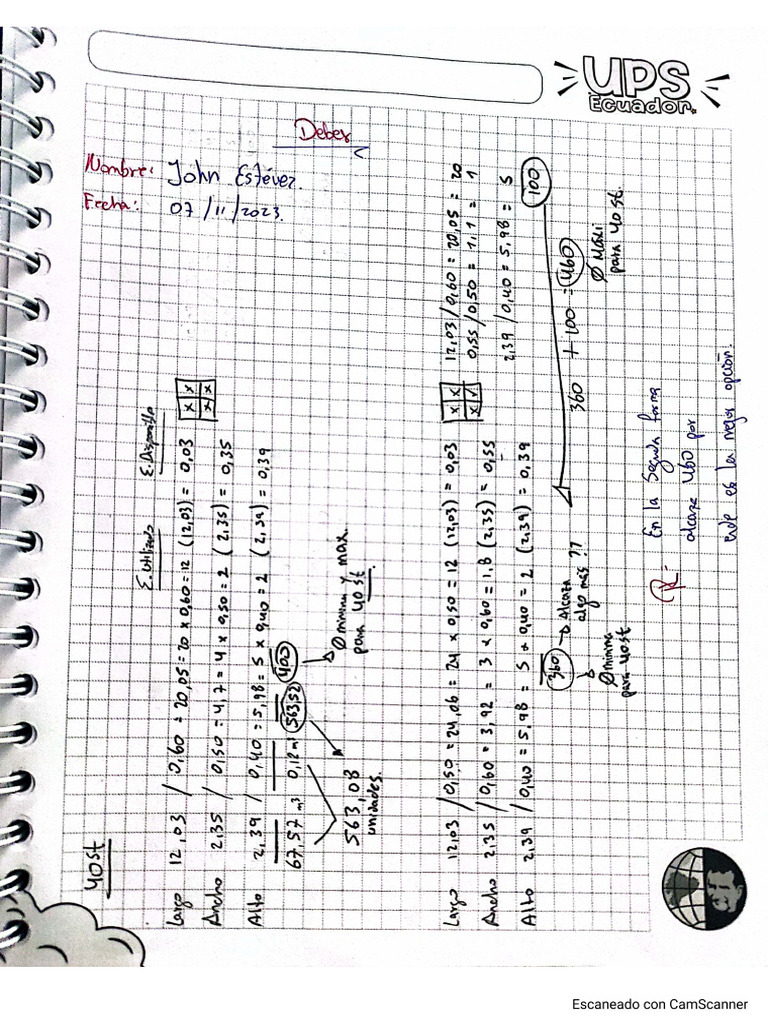 UPS
Ecuador.
Deber
Nombre: John Estévez.
Fecha: 07/11/2023.
40st
E. Utilizado E. Disponible
Largo 12,03 / 0,60 = 20,05 = 20 x 0,60 = 12 (12,03) = 0,03
x x
x x
Ancho 2,35 / 0,50 = 4,7 = 4 x 0,50 = 2 (2,35) = 0,35
Alto 2,39 / 0,40 = 5,98 = 5 x 0,40 = 2 (2,39) = 0,39
67,57 m3 0,12 m3 563,52 400
Ø minima y max.
para 40st
563,08
unidades.
Largo 12,03 / 0,50 = 24,06 = 24 x 0,50 = 12 (12,03) = 0,03
x x
x x
12,03 / 0,60 = 20,05 = 20
Ancho 2,35 / 0,60 = 3,92 = 3 x 0,60 = 1,8 (2,35) = 0,55
0,55 / 0,50 = 1,1 = 1
Alto 2,39 / 0,40 = 5,98 = 5 x 0,40 = 2 (2,39) = 0,39
2,39 / 0,40 = 5,98 = 5
100
360 → Alcaza
algo más ??
Ø minima
para 40st
360 + 100 = 460
Ø Maxi
para 40st.
R= En la Segunda forma
alcaza 460 por
ende es la mejor opción.
Escaneado con CamScanner